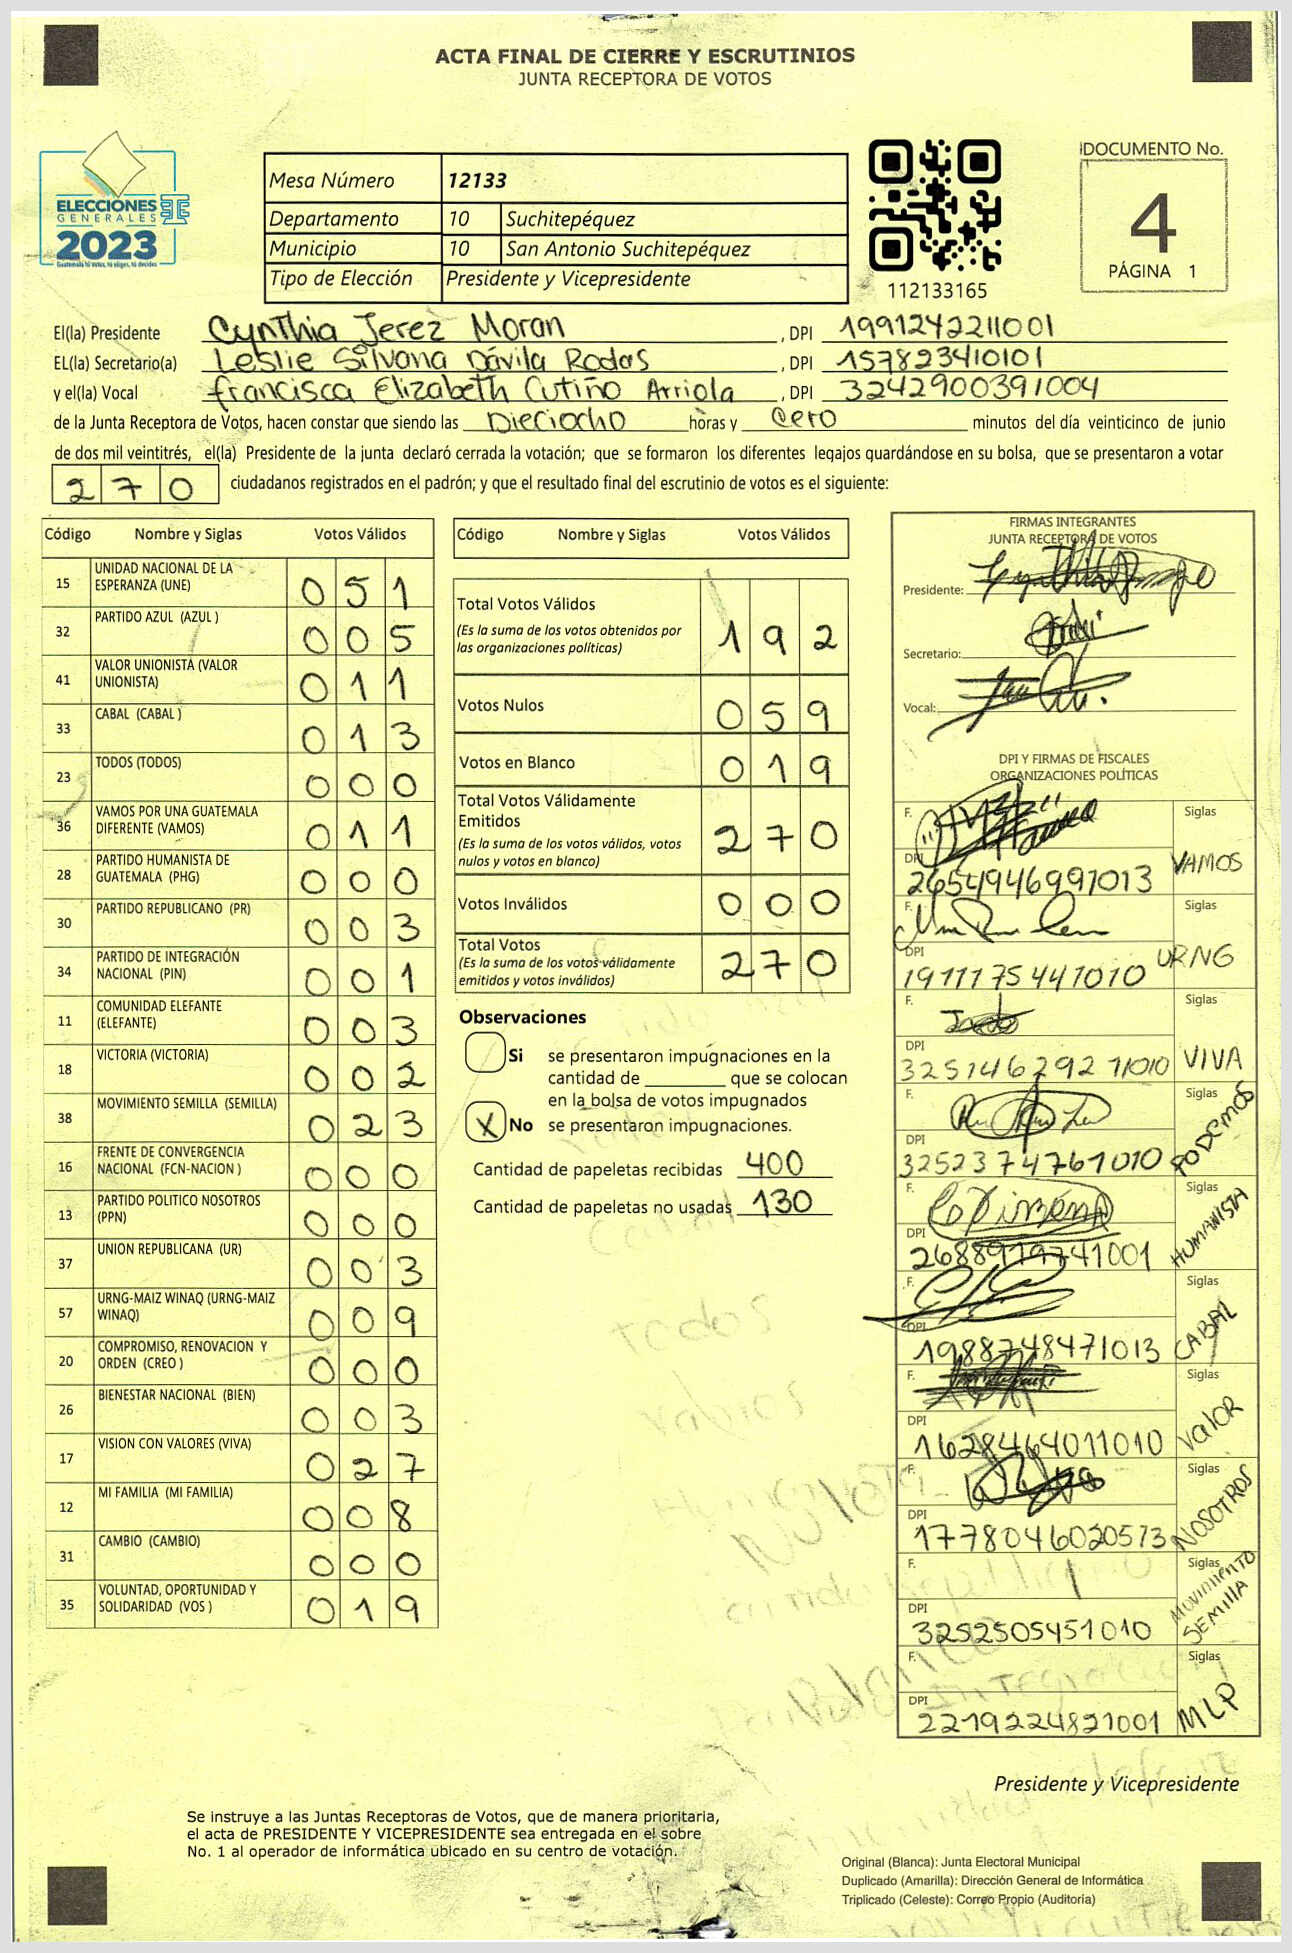 ACTA FINAL DE CIERRE Y ESCRUTINIOS
JUNTA RECEPTORA DE VOTOS
DOCUMENTO No.
4
PÁGINA 1
ELECCIONES
GENERALES
2023
Guatemala tú votas, tú eliges, tú decides
Mesa Número 12133
Departamento 10 Suchitepéquez
Municipio 10 San Antonio Suchitepéquez
Tipo de Elección Presidente y Vicepresidente
112133165
El(la) Presidente Cynthia Jerez Moran , DPI 1991242211001
EL(la) Secretario(a) Leslie Silvana Dávila Rodas , DPI 157823410101
y el(la) Vocal Francisca Elizabeth Cutiño Arriola , DPI 3242900391004
de la Junta Receptora de Votos, hacen constar que siendo las Dieciocho horas y cero minutos del día veinticinco de junio
de dos mil veintitrés, el(la) Presidente de la junta declaró cerrada la votación; que se formaron los diferentes legajos guardándose en su bolsa, que se presentaron a votar
270 ciudadanos registrados en el padrón; y que el resultado final del escrutinio de votos es el siguiente:
Código Nombre y Siglas Votos Válidos
15 UNIDAD NACIONAL DE LA ESPERANZA (UNE) 051
32 PARTIDO AZUL (AZUL ) 005
41 VALOR UNIONISTA (VALOR UNIONISTA) 011
33 CABAL (CABAL ) 013
23 TODOS (TODOS) 000
36 VAMOS POR UNA GUATEMALA DIFERENTE (VAMOS) 011
28 PARTIDO HUMANISTA DE GUATEMALA (PHG) 000
30 PARTIDO REPUBLICANO (PR) 003
34 PARTIDO DE INTEGRACIÓN NACIONAL (PIN) 001
11 COMUNIDAD ELEFANTE (ELEFANTE) 003
18 VICTORIA (VICTORIA) 002
38 MOVIMIENTO SEMILLA (SEMILLA) 023
16 FRENTE DE CONVERGENCIA NACIONAL (FCN-NACION ) 000
13 PARTIDO POLITICO NOSOTROS (PPN) 000
37 UNION REPUBLICANA (UR) 003
57 URNG-MAIZ WINAQ (URNG-MAIZ WINAQ) 009
20 COMPROMISO, RENOVACION Y ORDEN (CREO ) 000
26 BIENESTAR NACIONAL (BIEN) 003
17 VISION CON VALORES (VIVA) 027
12 MI FAMILIA (MI FAMILIA) 008
31 CAMBIO (CAMBIO) 000
35 VOLUNTAD, OPORTUNIDAD Y SOLIDARIDAD (VOS ) 019
Código Nombre y Siglas Votos Válidos
Total Votos Válidos 192
(Es la suma de los votos obtenidos por
las organizaciones políticas)
Votos Nulos 059
Votos en Blanco 019
Total Votos Válidamente
Emitidos 270
(Es la suma de los votos válidos, votos
nulos y votos en blanco)
Votos Inválidos 000
Total Votos 270
(Es la suma de los votos válidamente
emitidos y votos inválidos)
Observaciones
Si se presentaron impugnaciones en la
cantidad de ________ que se colocan
en la bolsa de votos impugnados
X No se presentaron impugnaciones.
Cantidad de papeletas recibidas 400
Cantidad de papeletas no usadas 130
FIRMAS INTEGRANTES
JUNTA RECEPTORA DE VOTOS
Presidente:
Secretario:
Vocal:
DPI Y FIRMAS DE FISCALES
ORGANIZACIONES POLÍTICAS
F. Siglas
DPI 2654946991013 VAMOS
F. Siglas
DPI 1911175441010 URNG
F. Siglas
DPI 3251462921010 VIVA
F. Siglas
DPI 3252374761010 PODEMOS
F. Siglas
DPI 2688919741001 HUMANISTA
F. Siglas
DPI 1988748471013 CABAL
F. Siglas
DPI 1628464011010 Valor
F. Siglas
DPI 1778046020513 NOSOTROS
F. Siglas
DPI 3252505451010 Movimiento SEMILLA
F. Siglas
DPI 2219224821001 MLP
Presidente y Vicepresidente
Se instruye a las Juntas Receptoras de Votos, que de manera prioritaria,
el acta de PRESIDENTE Y VICEPRESIDENTE sea entregada en el sobre
No. 1 al operador de informática ubicado en su centro de votación.
Original (Blanca): Junta Electoral Municipal
Duplicado (Amarilla): Dirección General de Informática
Triplicado (Celeste): Correo Propio (Auditoría)